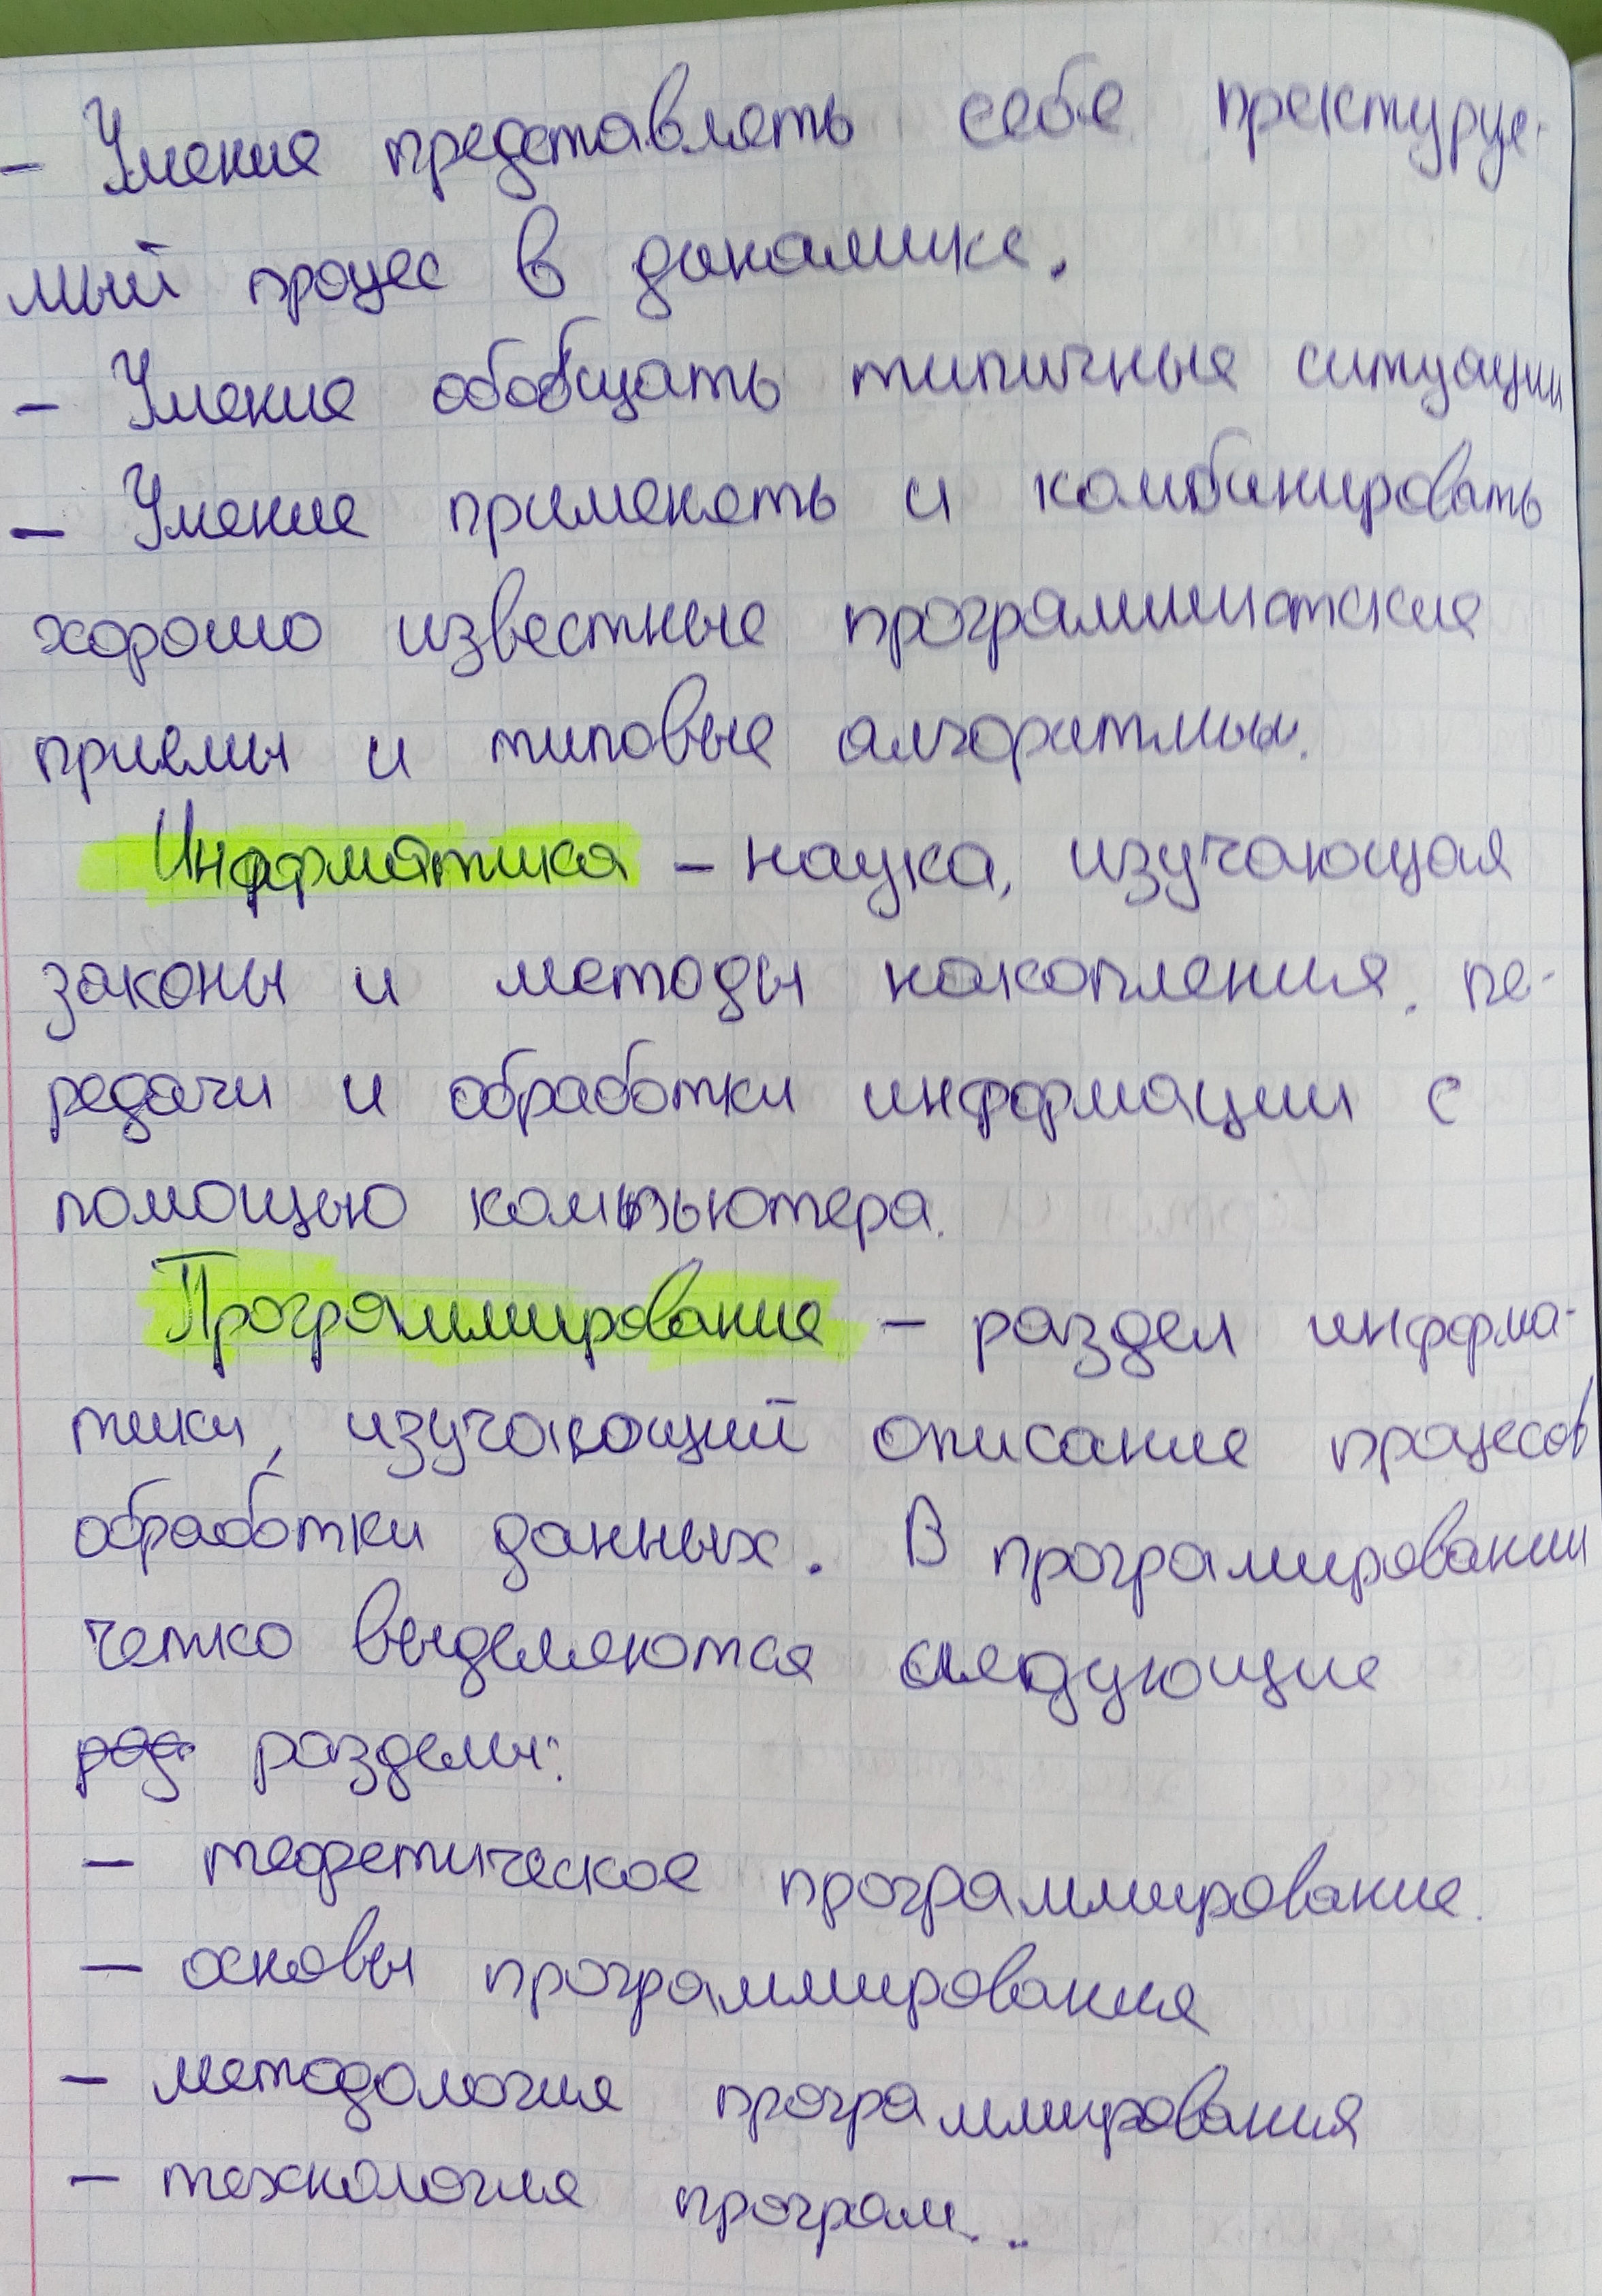 - Умение представлять себе пректируе-
мый процес в динамике.
- Умение обобщать типичные ситуации
- Умение применять и комбинировать
хорошо известные программистские
приемы и типовые алгоритмы.
Информатика - наука, изучающая
законы и методы накопления, пе-
редачи и обработки информации с
помощью компьютера.
Программирование - раздел информа-
тики, изучающий описание процесов
обработки данных. В програмировании
четко выделяются следующие
разделы:
- теоретическое программирование.
- основы программирования
- методология программирования
- технология програм...